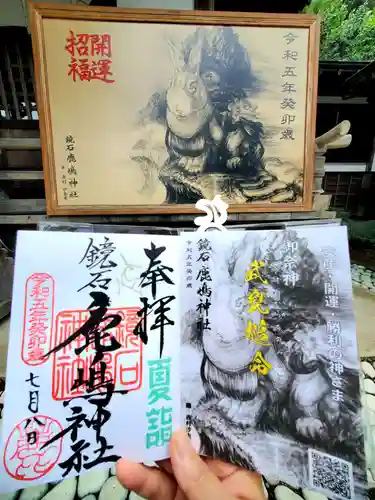 令和五年癸卯歳
開運
招福
鏡石鹿嶋神社
奉拝
夏詣
鏡石
鹿嶋神社
令和五年癸卯歳
七月八日
鏡石
神社
令和五年癸卯歳
鏡石鹿嶋神社
御祭神
武甕槌命
開運・勝利の神さま